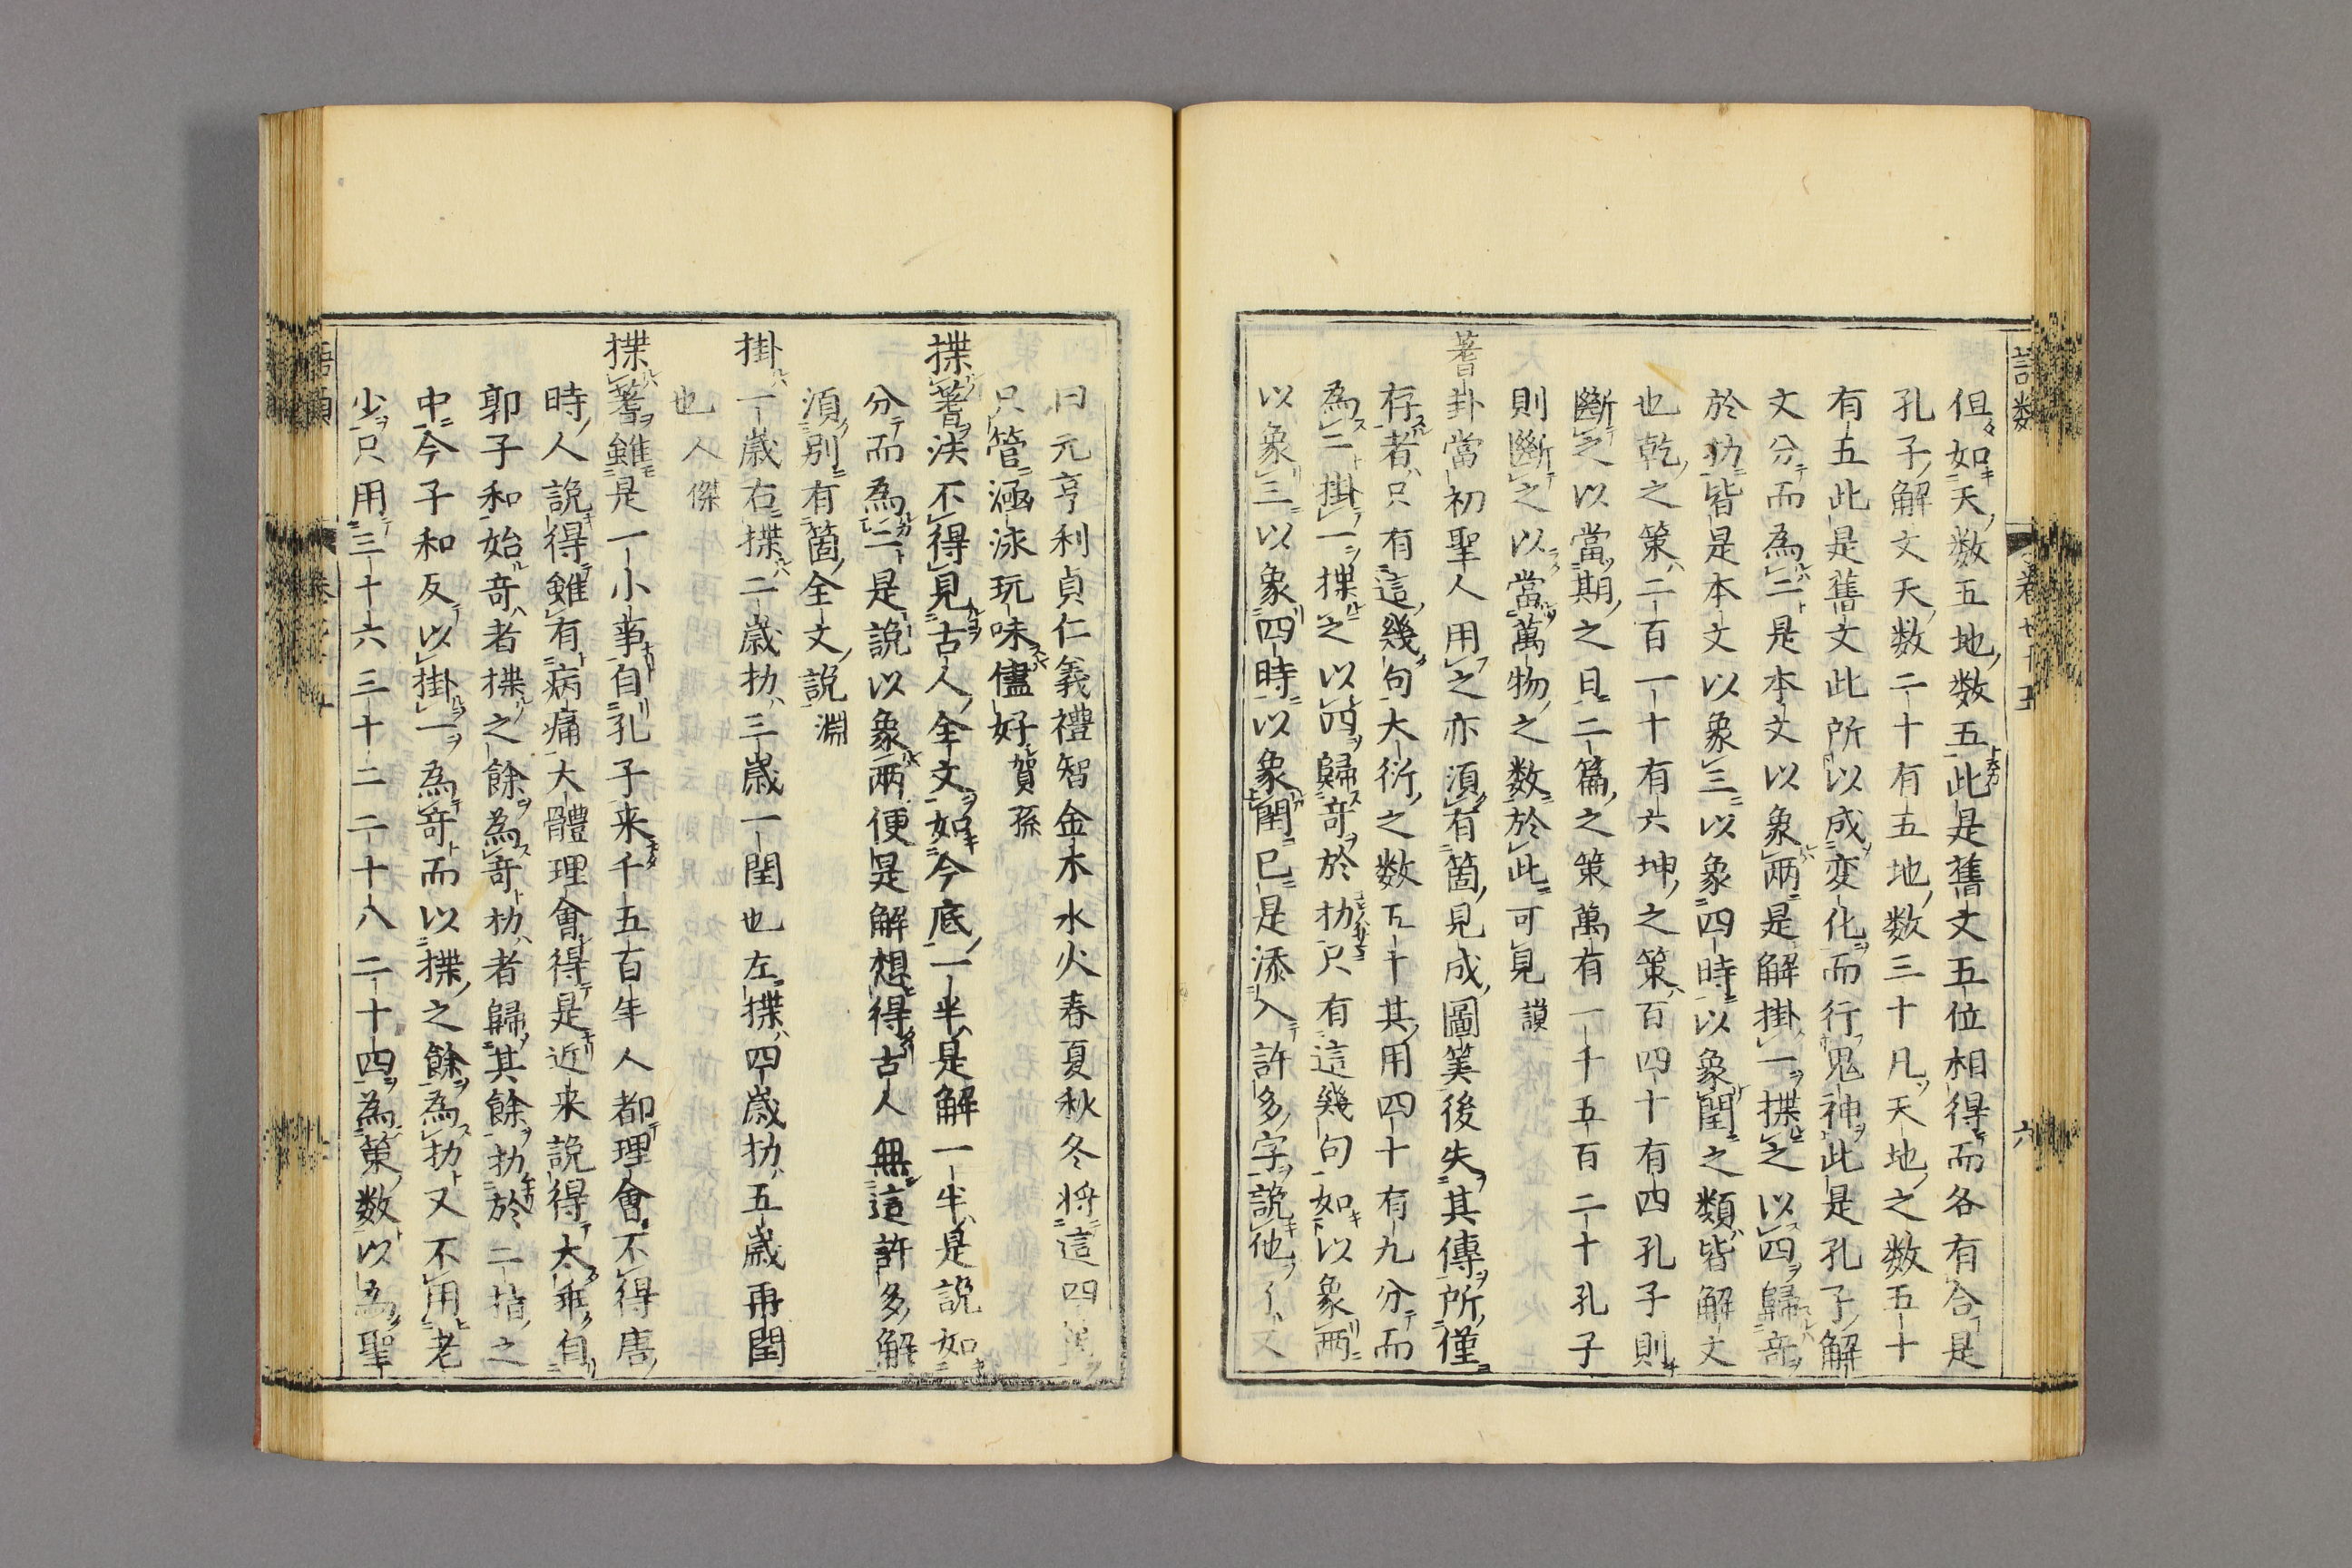 但如天数五地数五此是舊文五位相得而各有合是
孔子解文天数二十有五地数三十凡天地之数五十
有五此是舊文此所以成変化而行鬼神此是孔子解
文分而為二是本文以象兩是解掛一揲之以四歸奇
於扐皆是本文以象三以象四時以象閏之類皆解文
也乾之策二百一十有六坤之策百四十有四孔子則
斷之以當期之日二篇之策萬有一千五百二十孔子
則斷之以當萬物之数於此可見 謨
蓍卦當初聖人用之亦湏有箇見成圖筭後失其傳所僅
存者只有這幾句大衍之数五十其用四十有九分而
為二掛一揲之以四歸奇於扐只有這幾句如以象兩
以象三以象四時以象閏已是添入許多字說他了又
曰元亨利貞仁義禮智金木水火春夏秋冬将這四
只管涵泳玩味儘好 賀孫
揲蓍法不得見古人全文如今底一半是解一半是說如
分而為二是說以象兩便是解想得古人無這許多解
湏別有箇全文說 淵
掛一歲右揲二歲扐三歲一閏也左揲四歲扐五歲再閏
也 人傑
揲蓍雖是一小事自孔子来千五百年人都理會不得唐
時人說得雖有病痛大體理會得是近来說得太乖自
郭子和始奇者揲之餘為奇扐者歸其餘扐於二指之
中今子和反以掛一為奇而以揲之餘為扐又不用老
少只用三十六三十二二十八二十四為策数以為聖